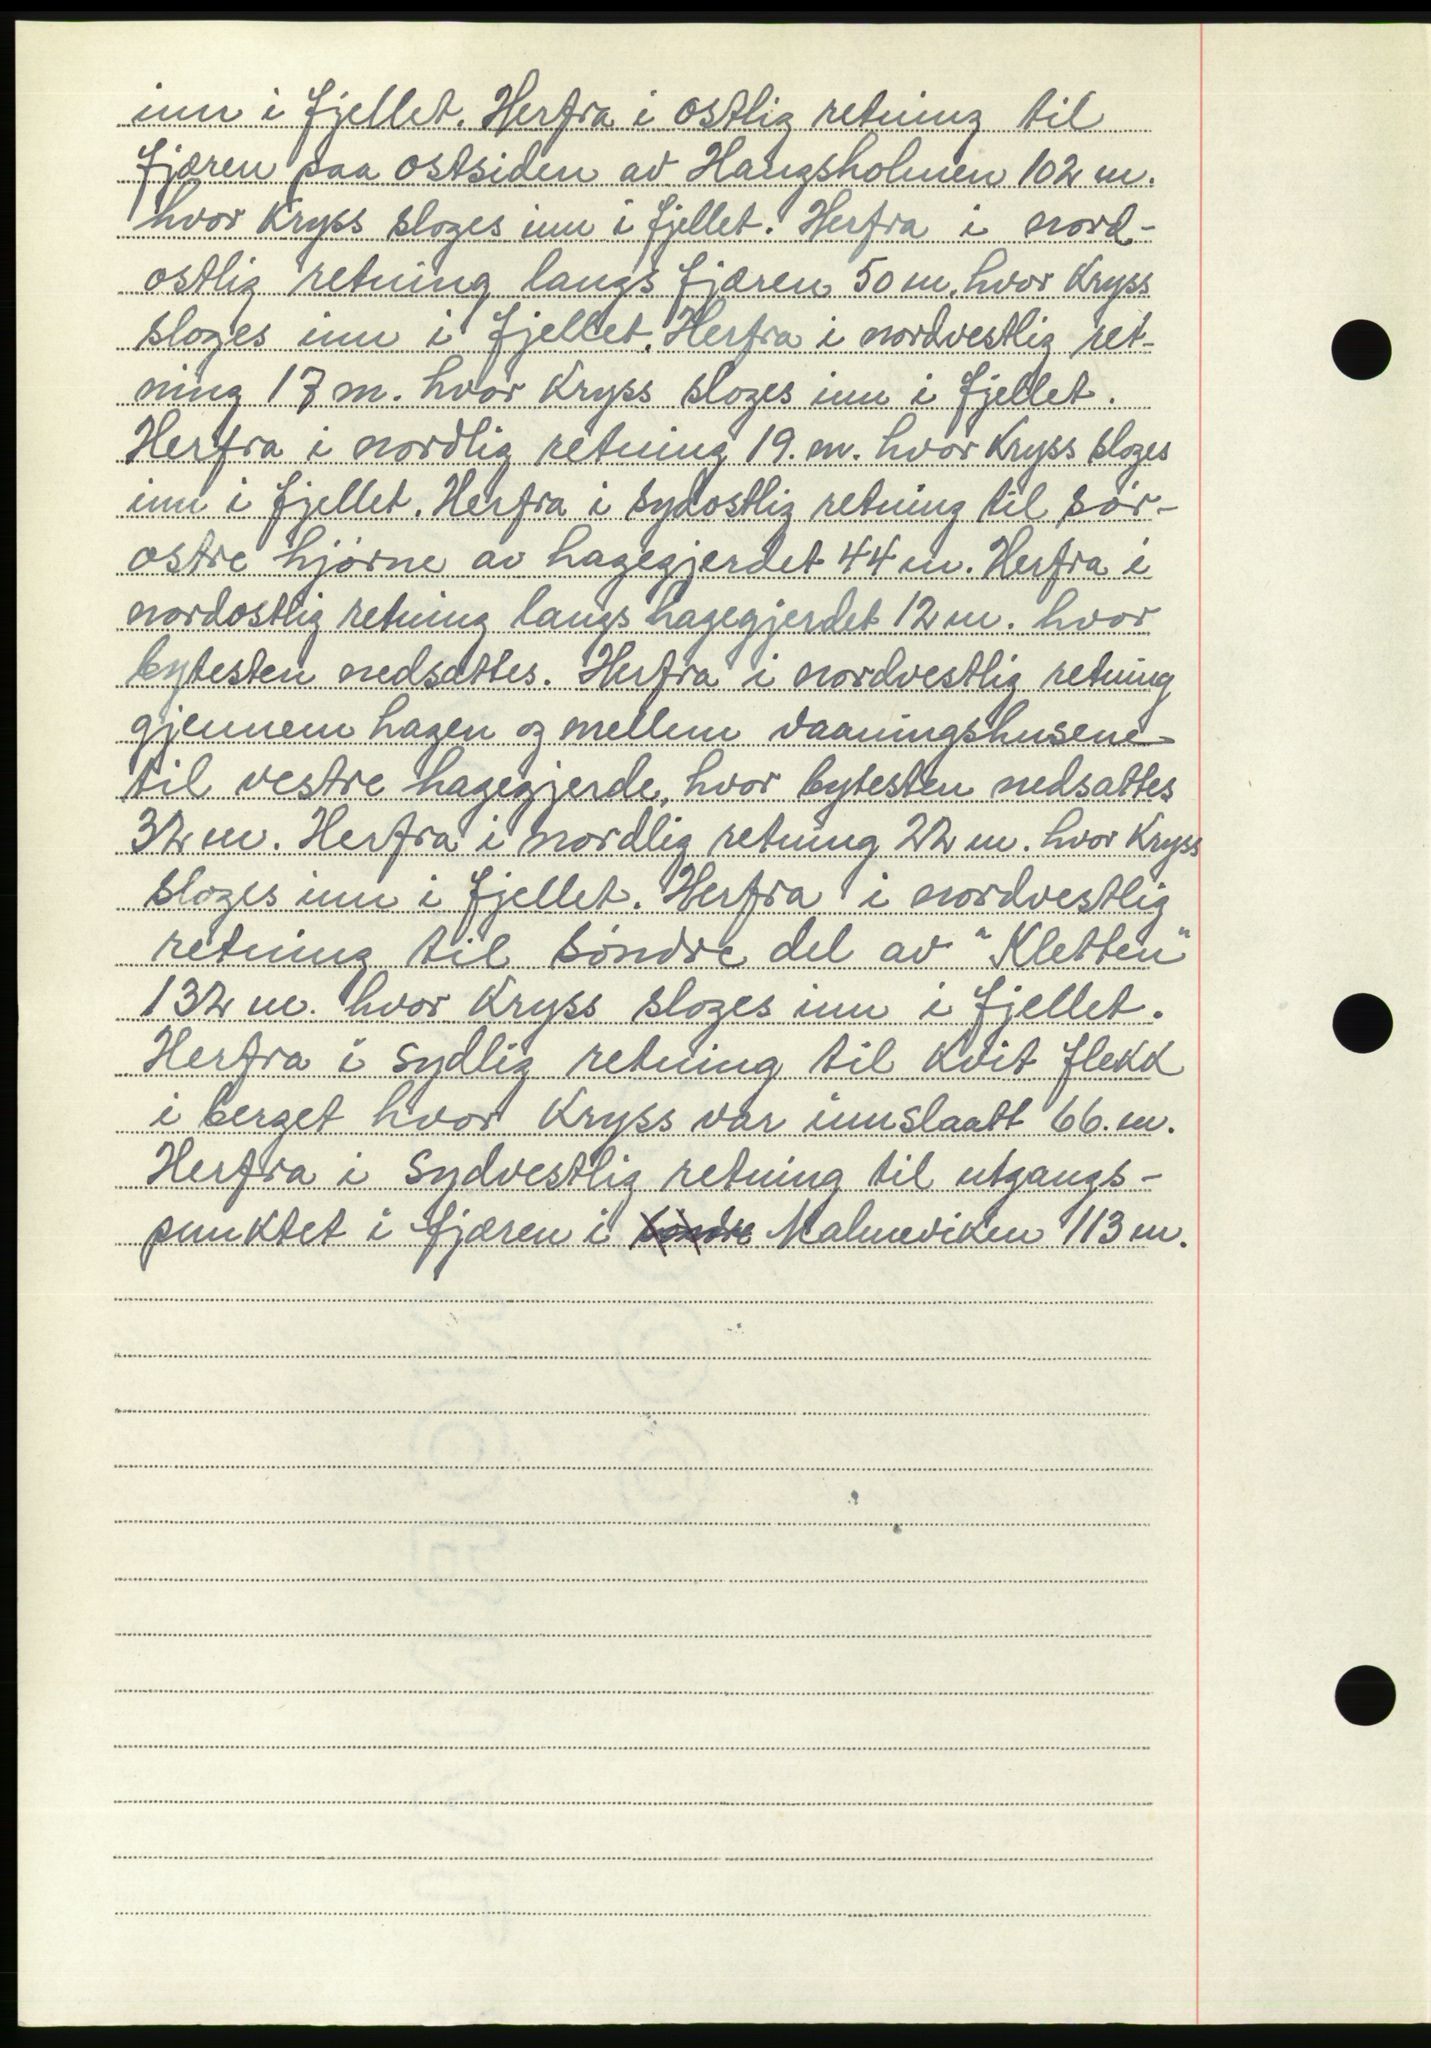 inn i fjellet. Herfra i ostlig retning til
fjæren paa ostsiden av Haugsholmen 102 m.
hvor Kryss sloges inn i fjellet. Herfra i nord-
ostlig retning langs fjæren 50 m. hvor Kryss
sloges inn i fjellet. Herfra i nordvestlig ret-
ning 17 m. hvor Kryss sloges inn i fjellet.
Herfra i nordlig retning 19. m. hvor Kryss sloges
inn i fjellet. Herfra i sydostlig retning til sör-
ostre hjörne av hagegjerdet 44 m. Herfra i
nordostlig retning langs hagegjerdet 12 m. hvor
bytesten nedsattes. Herfra i nordvestlig retning
gjennem hagen og mellem vaaningshusene
til vestre hagegjerde, hvor bytesten nedsattes
32 m. Herfra i nordlig retning 22 m. hvor Kryss
sloges inn i fjellet. Herfra i nordvestlig
retning til söndre del av "Kletten"
132 m. hvor Kryss sloges inn i fjellet.
Herfra i sydlig retning til Kvit flekk
i berget hvor Kryss var innslaatt 66. m.
Herfra i Sydvestlig retning til utgangs-
punktet i fjæren i söndre Malmeviken 113 m.